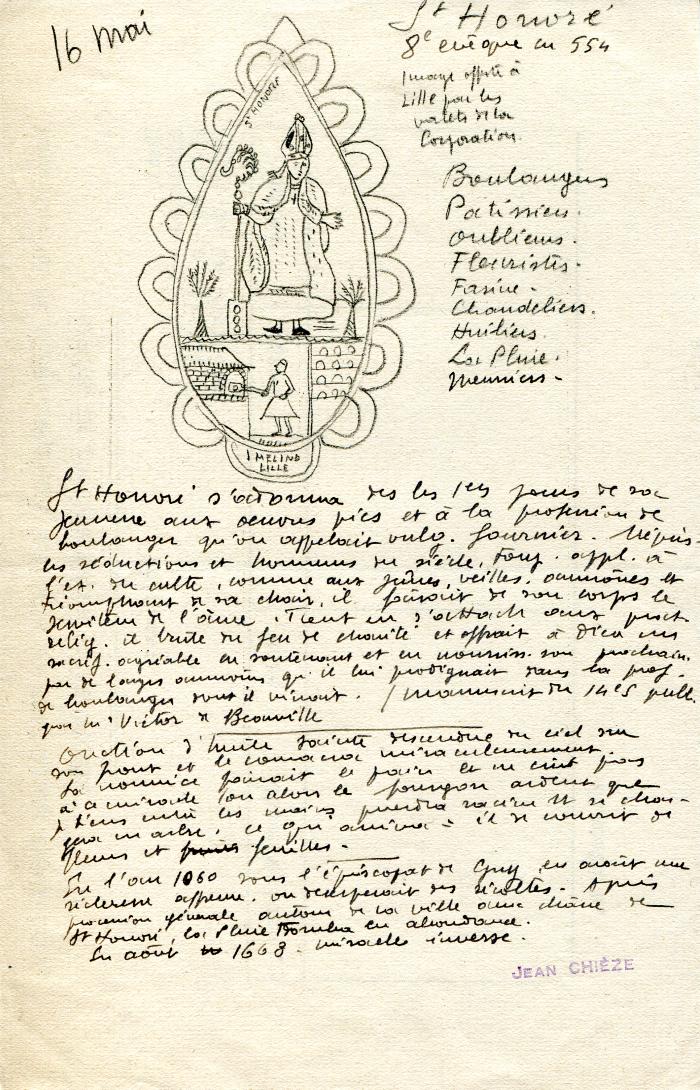 16 mai
St Honoré
8e évêque en 554
Image offerte à
Lille par les
valets de la
Corporation.
Boulangers
Patissiers.
Oublieurs.
Fleuristes.
Farine.
Chandeliers.
Huiliers.
La Pluie.
Meuniers.
ST HONORE
LILLE
St Honoré s'adonna dès les 1ers jours de sa
jeunesse aux œuvres pies et à la profession de
boulanger qu'on appelait vulg. fournier. Mépris.
les séductions et honneurs du siècle, touj. appl. à
l'ex. du culte, comme aux jeûnes, veilles, aumônes et
triomphant de sa chair, il faisait de son corps le
serviteur de l'âme. Tout en s'attach. aux prat.
relig. il brûle du feu de charité et offrait à Dieu un
sacrif. agréable en soutenant et en nourriss. son prochain
par de larges aumônes qu'il lui prodiguait dans la prof.
de boulanger dont il vivait. / manuscrit du 14e S publ.
par Mr Victor de Beauvillé
Onction d'huile sainte descendue du ciel sur
son front et le consacra miraculeusement.
La nourrice faisait le pain et ne crut pas
à ce miracle ou alors le fourgon ardent que
je tiens entre les mains prendra racine et se chan-
gera en arbre, ce qui arriva - il se couvrit de
fleurs et feuilles.
En l'an 1060 sous l'Épiscopat de Guy, en août une
sécheresse affreuse. on désespérait des récoltes. Après
procession générale autour de la ville avec châsse de
St Honoré, la Pluie tomba en abondance.
En août 1663. miracle inverse.
JEAN CHIÈZE